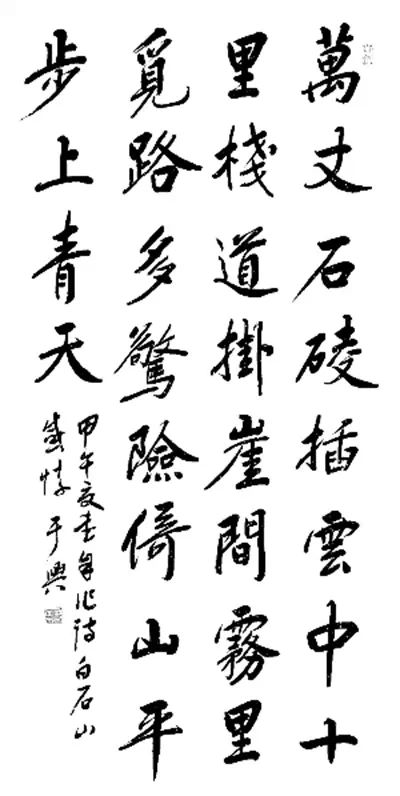 萬丈石碐插雲中十
里棧道掛崖間霧里
覓路多驚險倚山平
步上青天
甲午夏書自作詩白石山
感 于興